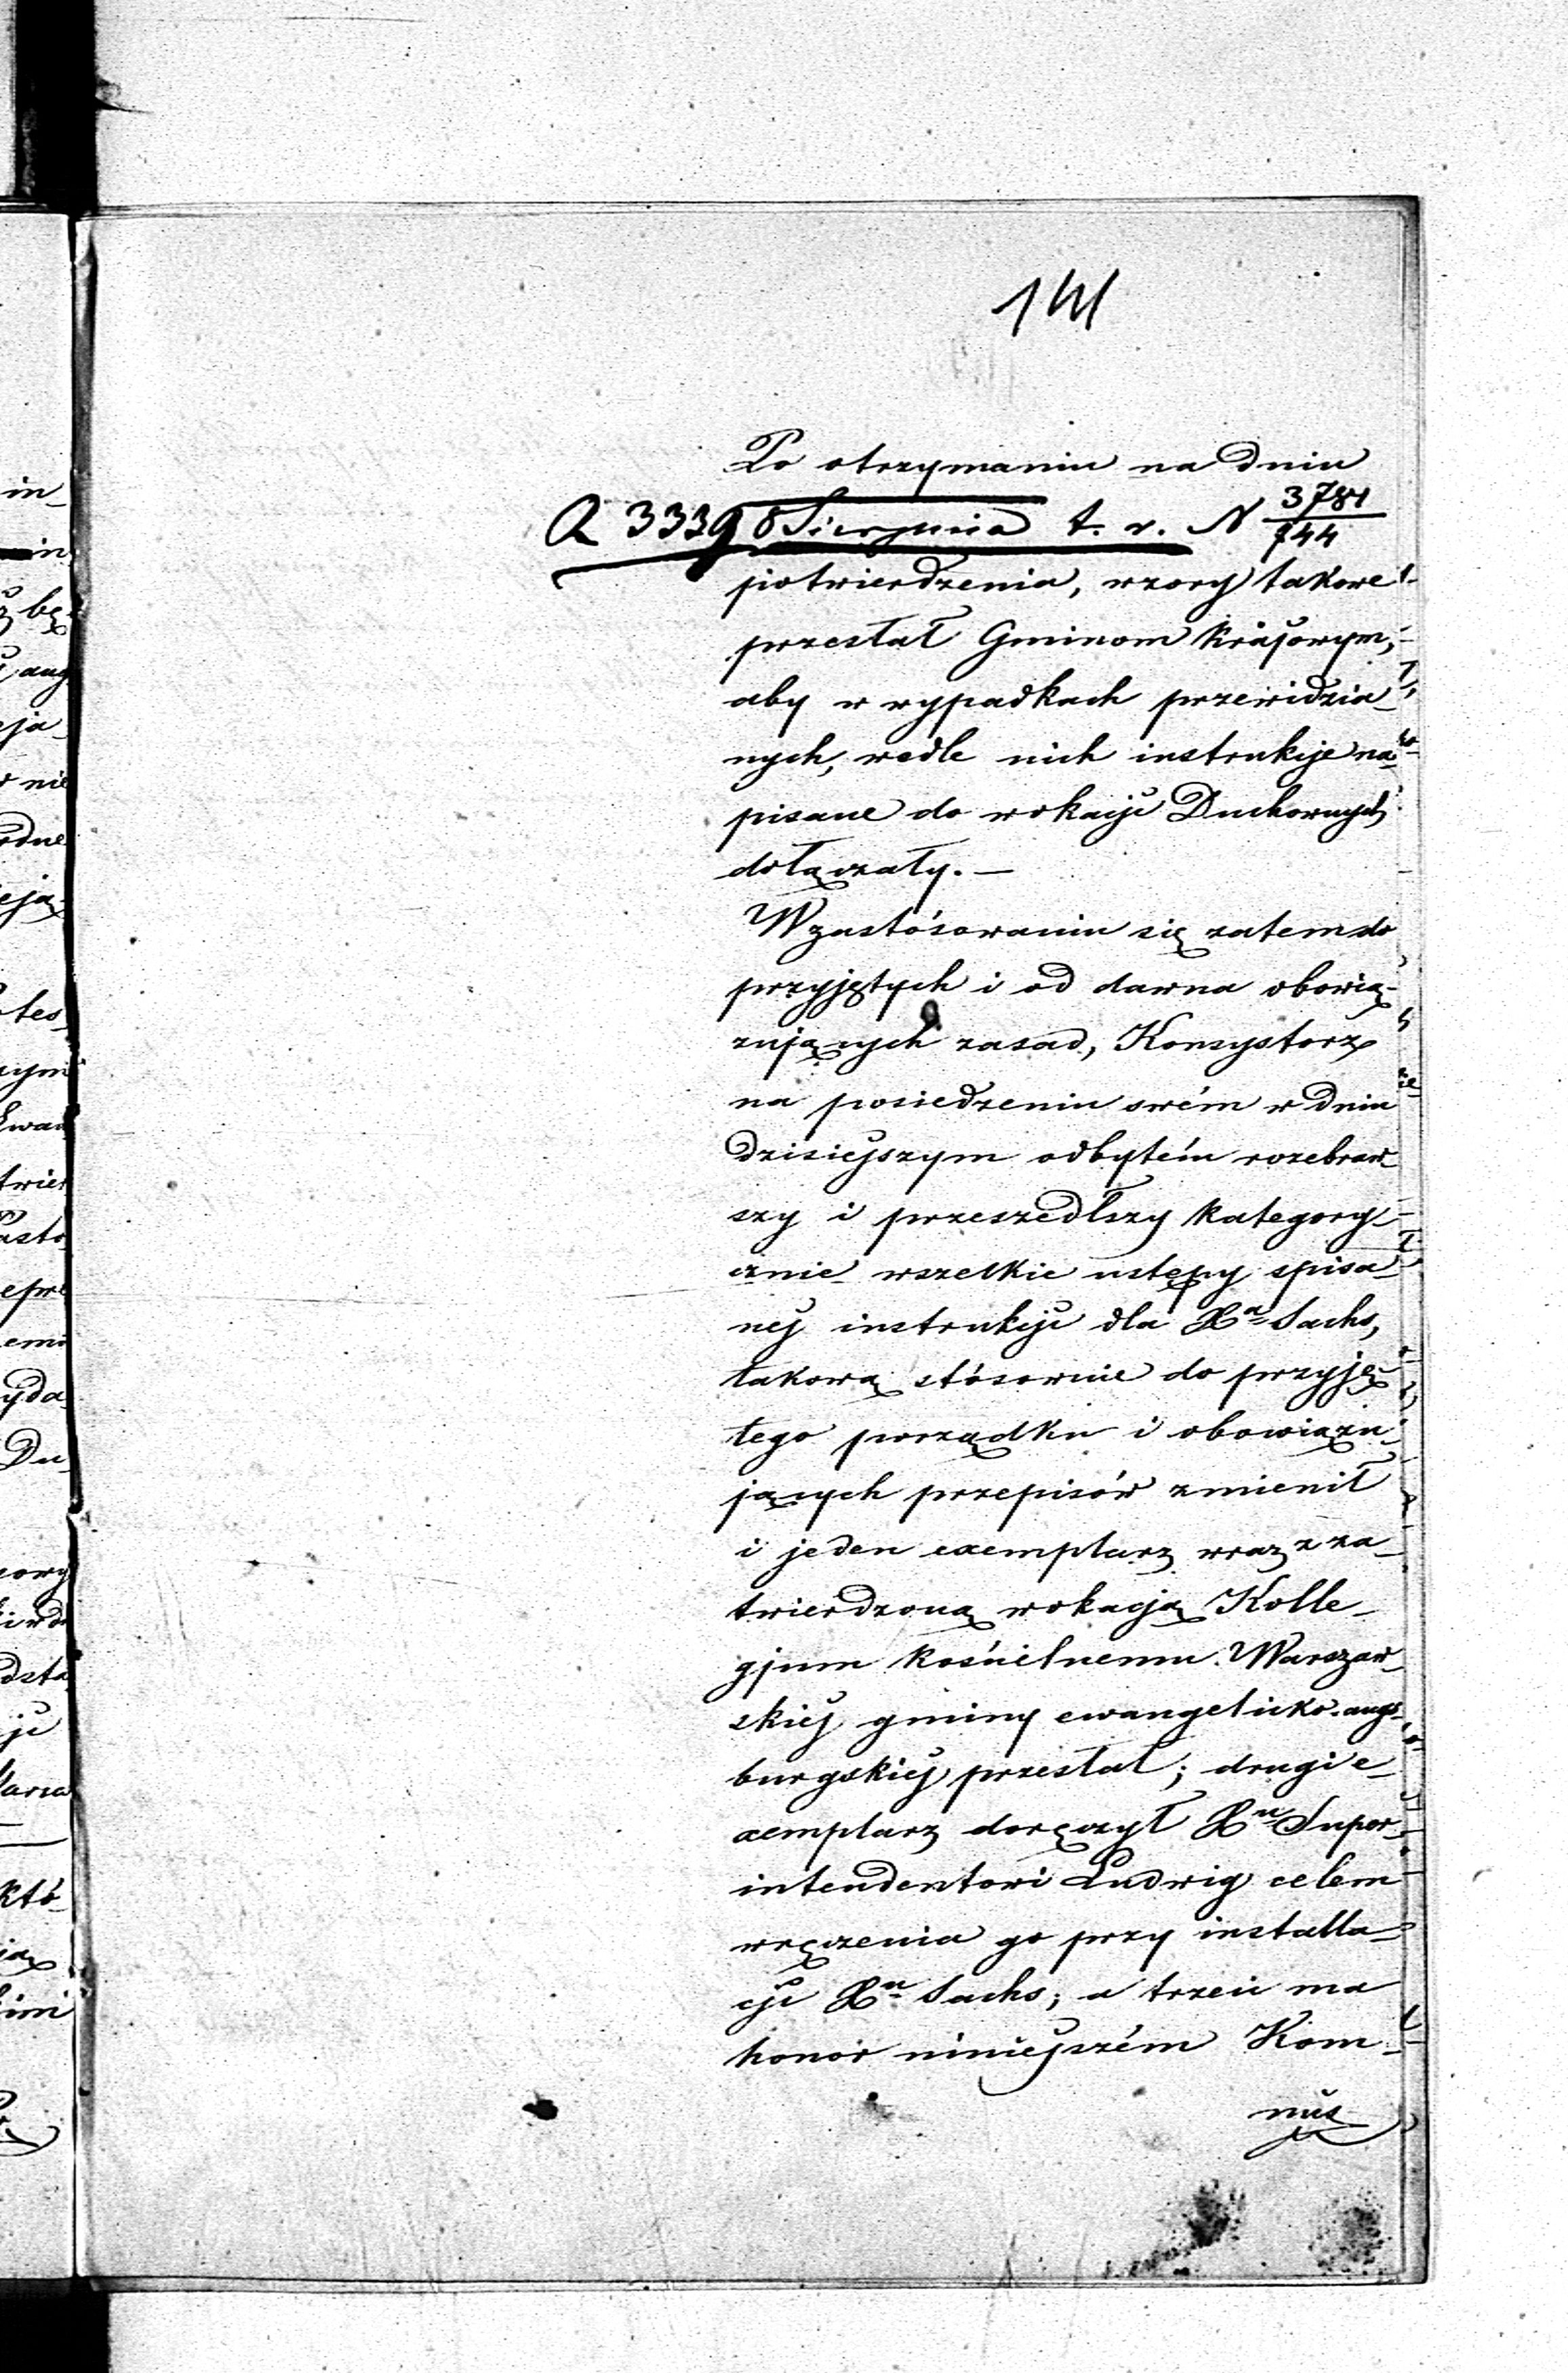 141
Po otrzymaniu na dniu
Q 3339 8 Sierpnia t. r. N 3784/744
potwierdzenia, wzory takowe
przesłał Gminom Krajowym,
aby w wypadkach przewidzia-
nych, wedle nich instrukcje na-
pisane do wokacji Duchownych
dołączały. —
W zastósowaniu się zatem do
przyjętych i od dawna obowią-
zujących zasad, Konsystorz
na posiedzeniu swém w dniu
dzisiejszym odbytém rozebraw-
szy i przeszedłszy kategory-
cznie wszelkie ustępy spisa-
nej instrukcji dla Xa Sachs,
takową stósownie do przyję-
tego porządku i obowiązu-
jących przepisów zmienił
i jeden exemplarz wraz z za-
twierdzoną wokacją Kolle-
gjum kościelnemu Warszaw-
skiej gminy ewangelicko-augs-
burgskiej przesłał; drugi e-
xemplarz doręczył Xu Super-
intendentowi Ludwig celem
wręczenia go przy installa-
cji Xu Sachs; a trzeci ma
honor niniejszém Kom-
mis